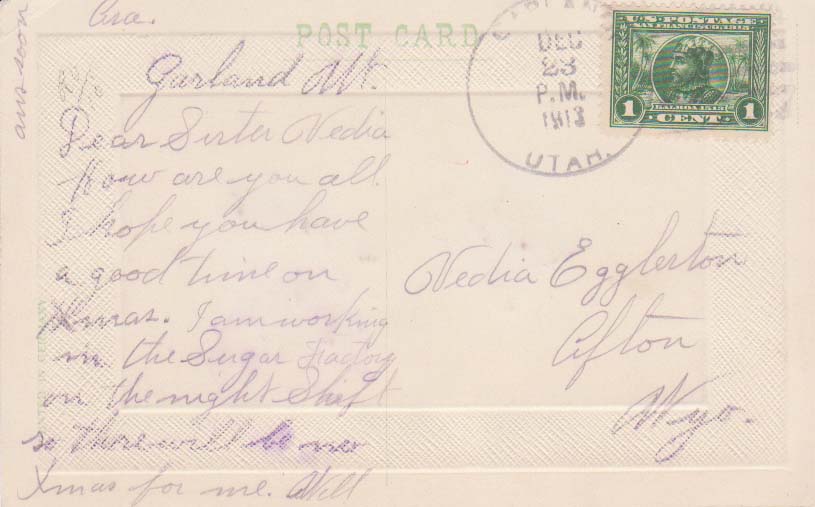 Ora.
ans soon
POST CARD
Garland Ut.
Dear Sister Vedia
How are you all.
I hope you have
a good time on
Xmas. I am working
in the Sugar Factory
on the night Shift
so there will be no
Xmas for me. Will
Vedia Egglerton
Afton
Wyo.
GARLAND
DEC
23
P.M.
1913
UTAH.
U·S·POSTAGE
SAN FRANCISCO·1915
BALBOA 1513
1 CENT 1